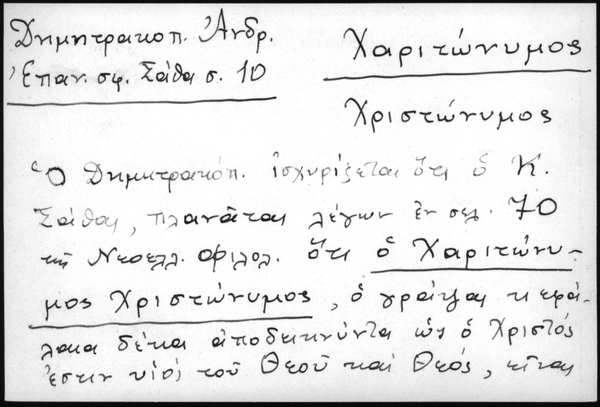 Δημητρακοπ. Ἀνδρ.
Ἐπαν. σφ. Σάθα σ. 10
Χαριτώνυμος
Χριστώνυμος
Ὁ Δημητρακόπ. ἰσχυρίζεται ὅτι ὁ Κ.
Σάθας, πλανᾶται λέγων ἐν σελ. 70
τῆς Νεοελλ. Φιλολ. ὅτι ὁ Χαριτώνυ-
μος Χριστώνυμος, ὁ γράψας κεφά-
λαια δέκα ἀποδεικνύντα ὡς ὁ Χριστός
ἐστιν υἱός τοῦ Θεοῦ καί Θεός, εἶναι